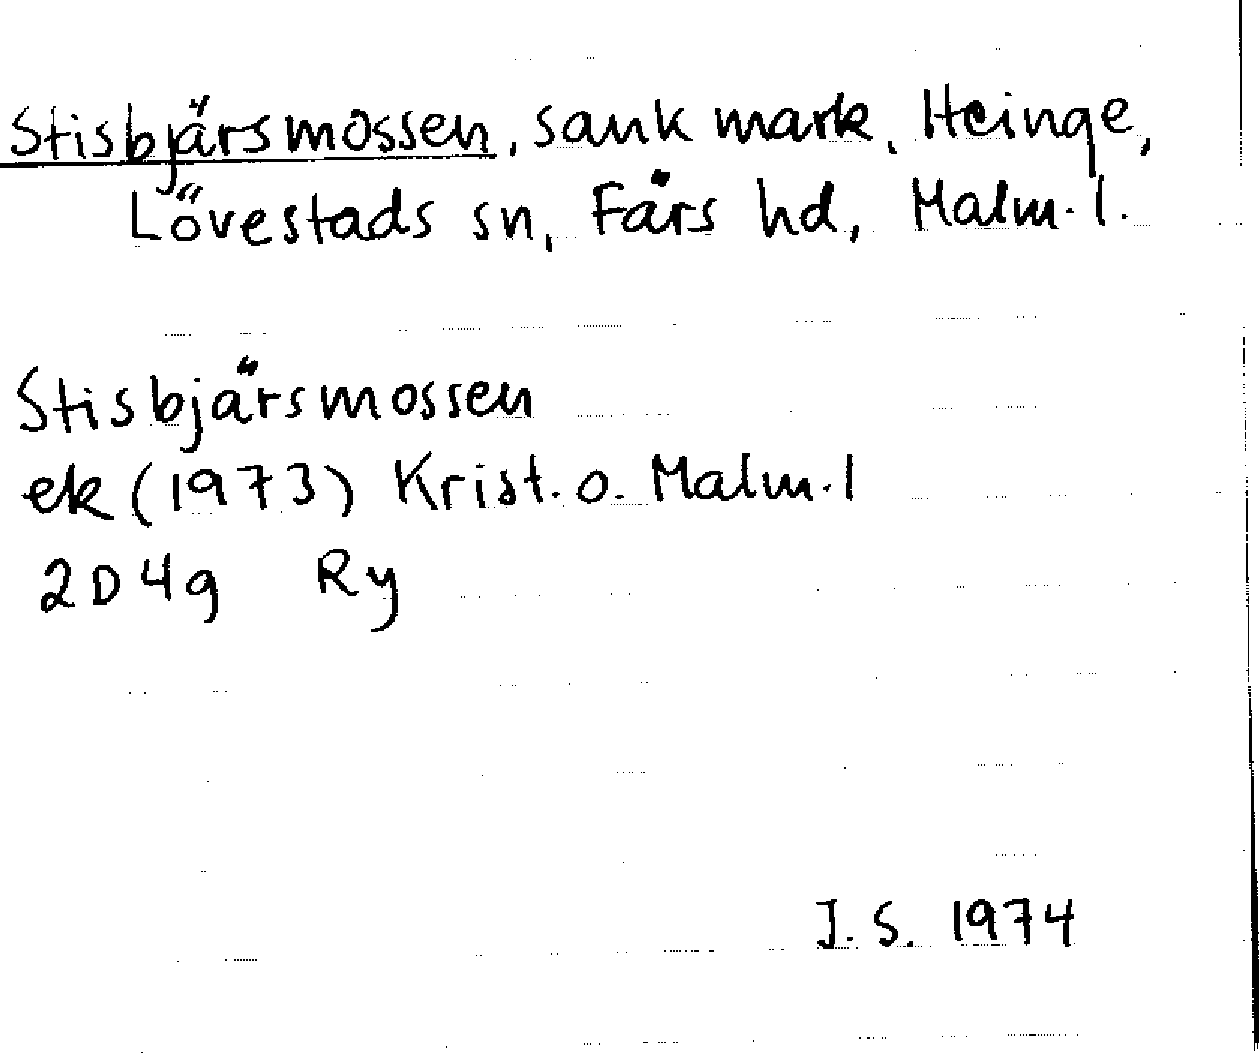 Stisbjärsmossen, sank mark, Heinge,
Lövestads sn, Färs hd, Malm. l.
Stisbjärsmossen
ek (1973) Krist. o. Malm. l
2D4g Ry
J. S. 1974